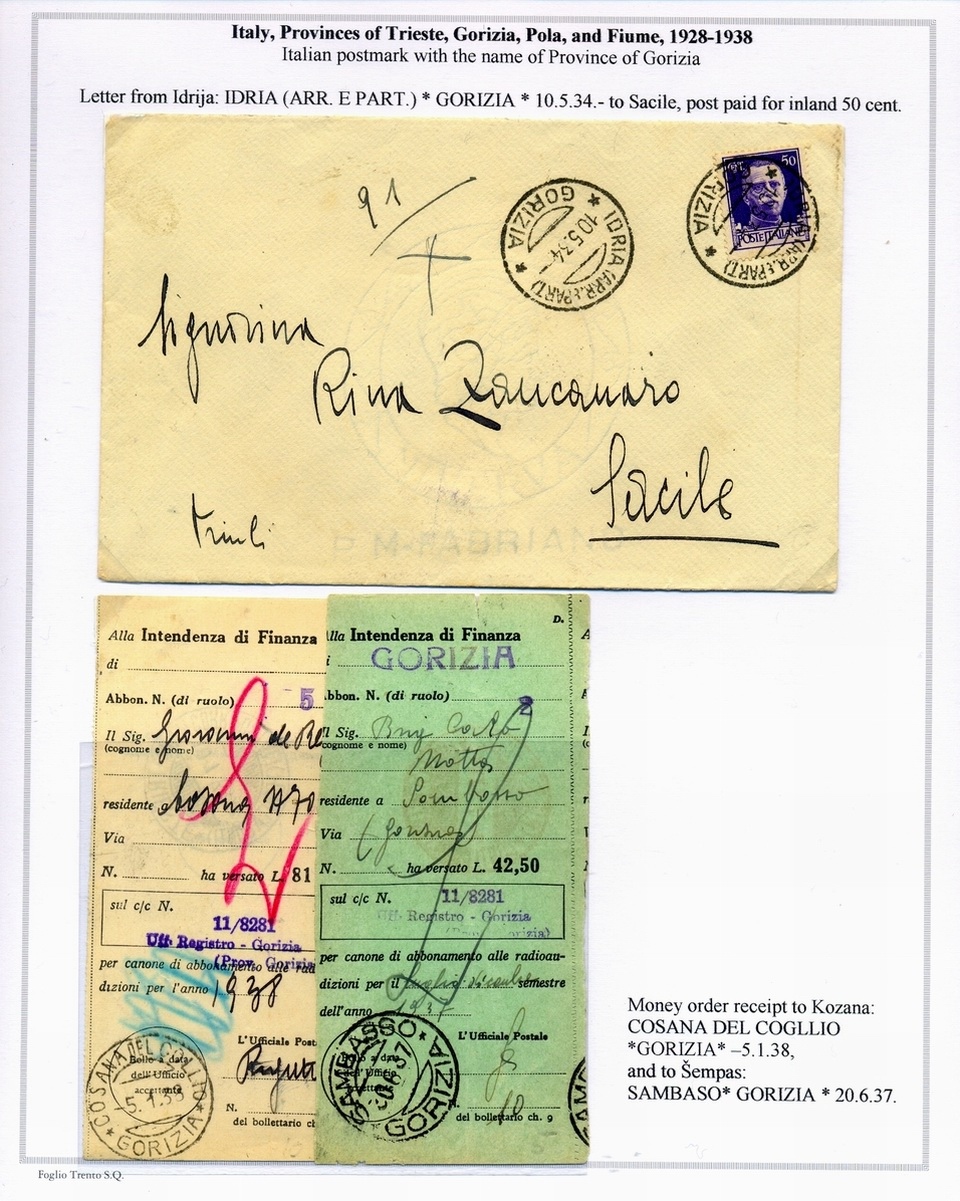 Italy, Provinces of Trieste, Gorizia, Pola, and Fiume, 1928-1938
Italian postmark with the name of Province of Gorizia
Letter from Idrija: IDRIA (ARR. E PART.) * GORIZIA * 10.5.34.- to Sacile, post paid for inland 50 cent.
91
50
POSTE ITALIANE
IDRIA (ARR. E PART.)
* GORIZIA *
10.5.34-
Signorina
Rina Zancanaro
Sacile
Friuli
P M-FABRIANO
Alla Intendenza di Finanza
di
Abbon. N. (di ruolo) 5
Il Sig. Giovanni de
(cognome e nome)
residente
Via
N. ha versato L. 81
sul c/c N.
11/8281
Uff. Registro - Gorizia
(Prov. Gorizia
per canone di abbonamento alle rad
dizioni per l'anno 1938
L'Ufficiale Post
Bollo a data
dell'Ufficio
accettante
N.
del bollettario ch
COSANA DEL COGLIO
* GORIZIA *
5.1.38
D.
lla Intendenza di Finanza
i GORIZIA
Abbon. N. (di ruolo) 2
Il Sig.
(cognome e nome)
Motta
residente a
Via (Gorizia)
N. ha versato L. 42,50
sul c/c N.
11/8281
Uff. Registro - Gorizia
per canone di abbonamento alle radioau-
dizioni per il luglio dicembre semestre
dell'anno 1937
L'Ufficiale Postale
Bollo a data
dell'Ufficio
accettante
N. 10
del bollettario ch. 9
SAMBASSO
* GORIZIA *
Money order receipt to Kozana:
COSANA DEL COGLLIO
*GORIZIA* –5.1.38,
and to Šempas:
SAMBASO* GORIZIA * 20.6.37.
Foglio Trento S.Q.